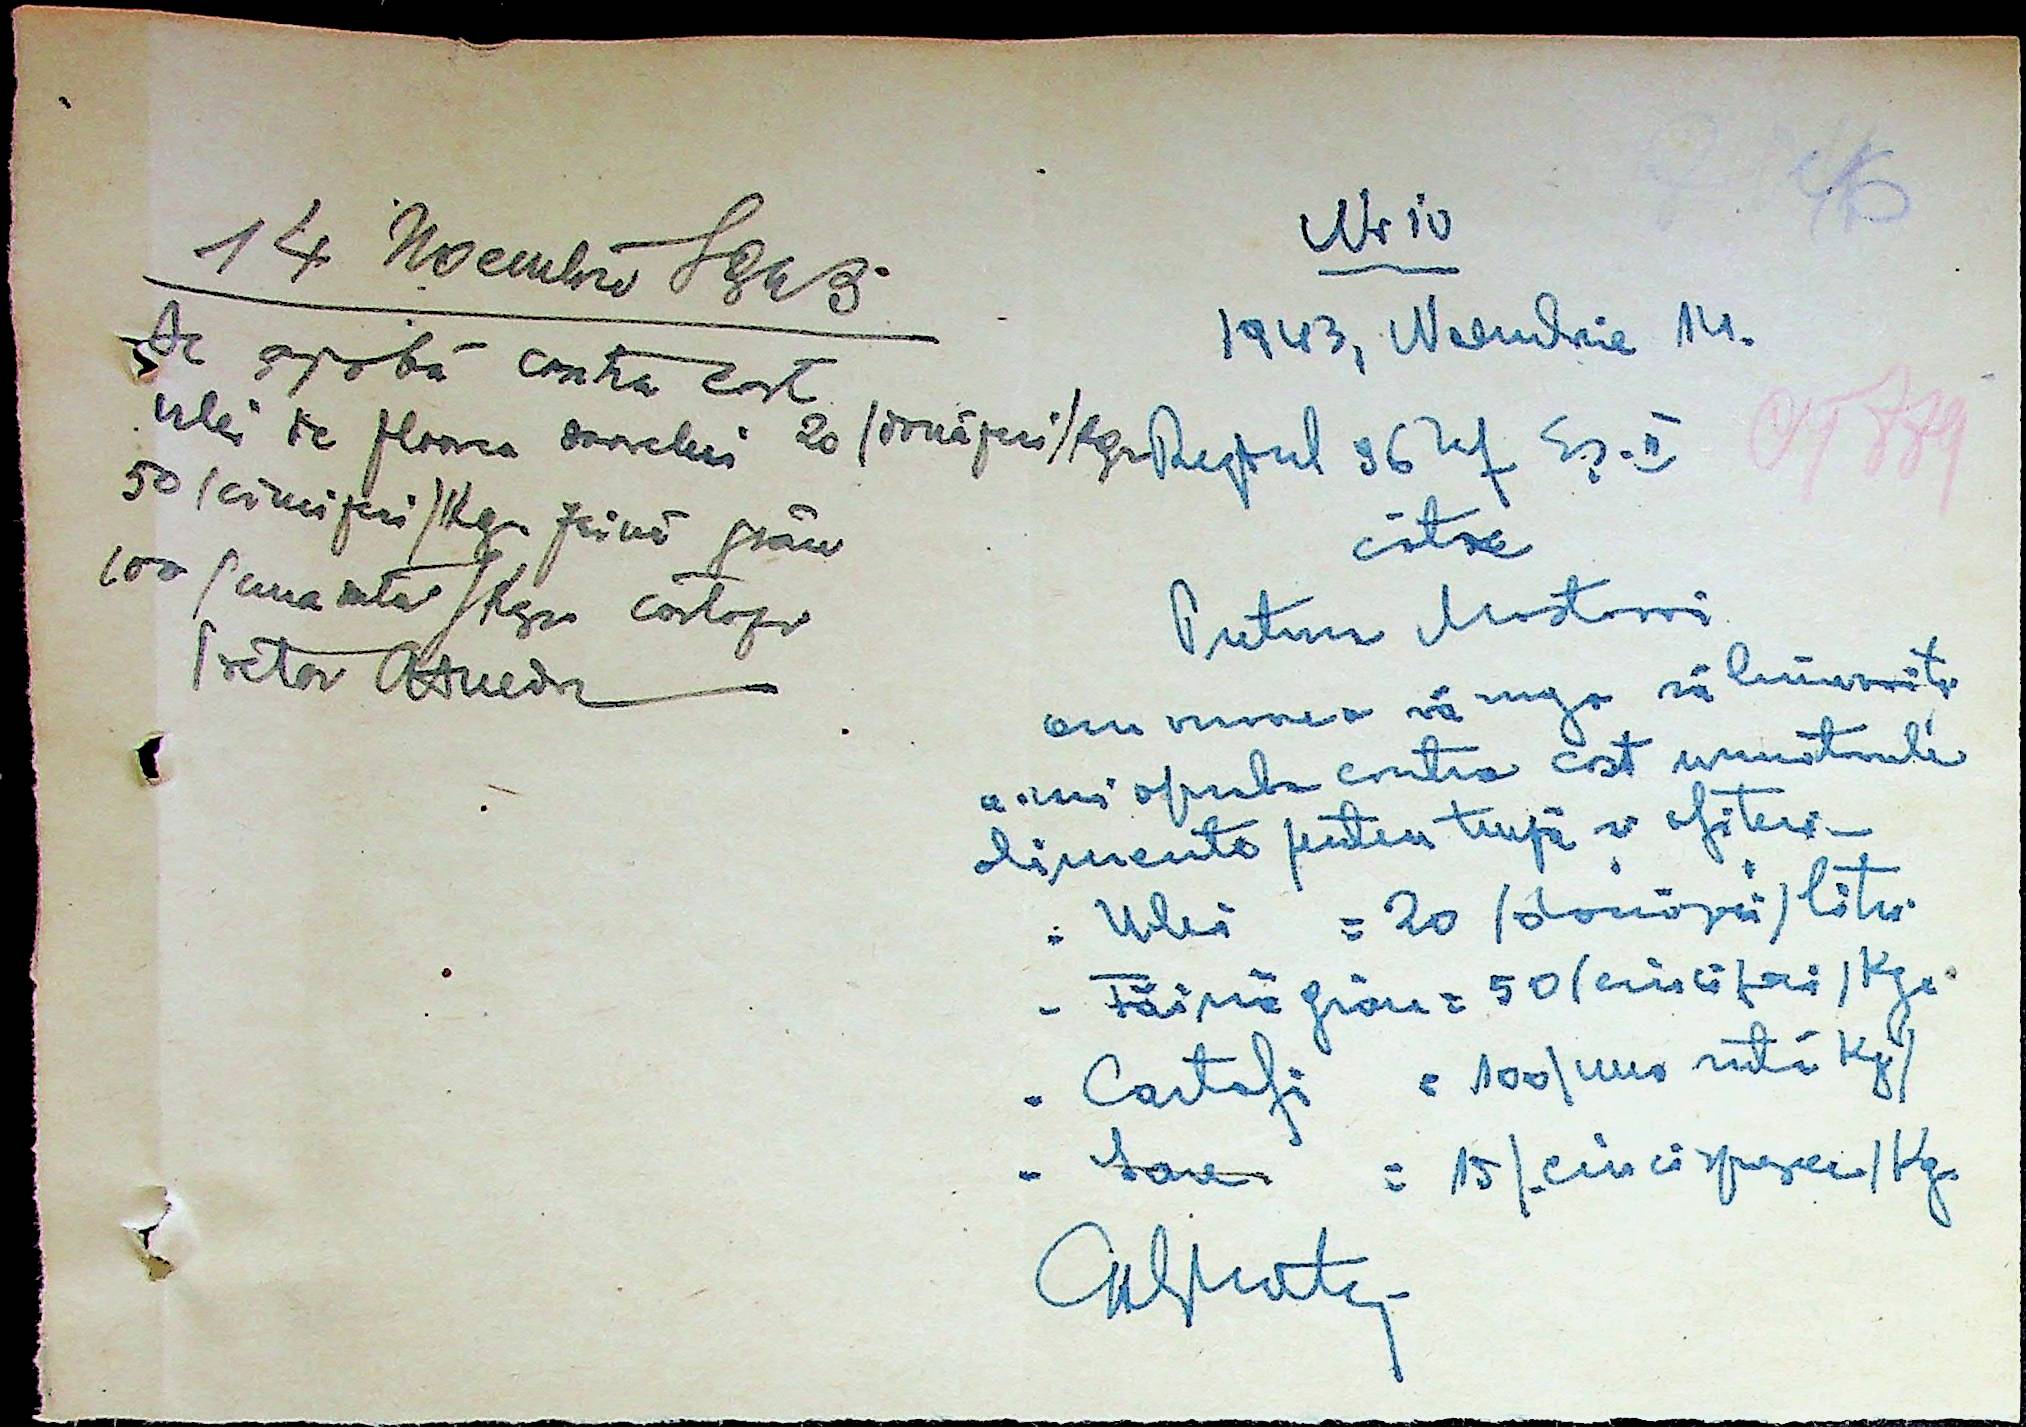 14 Noembrie 1943
Se aprobă contra cost
ulei de floarea soarelui 20 (douăzeci) Kgr
50 (cincizeci) Kgr făină grâu
100 (una sută) Kgr cartofi
Pretor
Nr 10
1943, Noembrie 14.
Regtul 36 Inf Eș. II
către
Pretura Mostovoi
am onoarea vă ruga să binevoiți
a-mi aproba contra cost următoarele
alimente pentru trupă și ofițeri-
- Ulei = 20 (douăzeci) litri
- Făină grâu = 50 (cincizeci) Kgr.
- Cartofi = 100 (una sută Kgr)
- Sare = 15 (cincisprezece) Kgr.